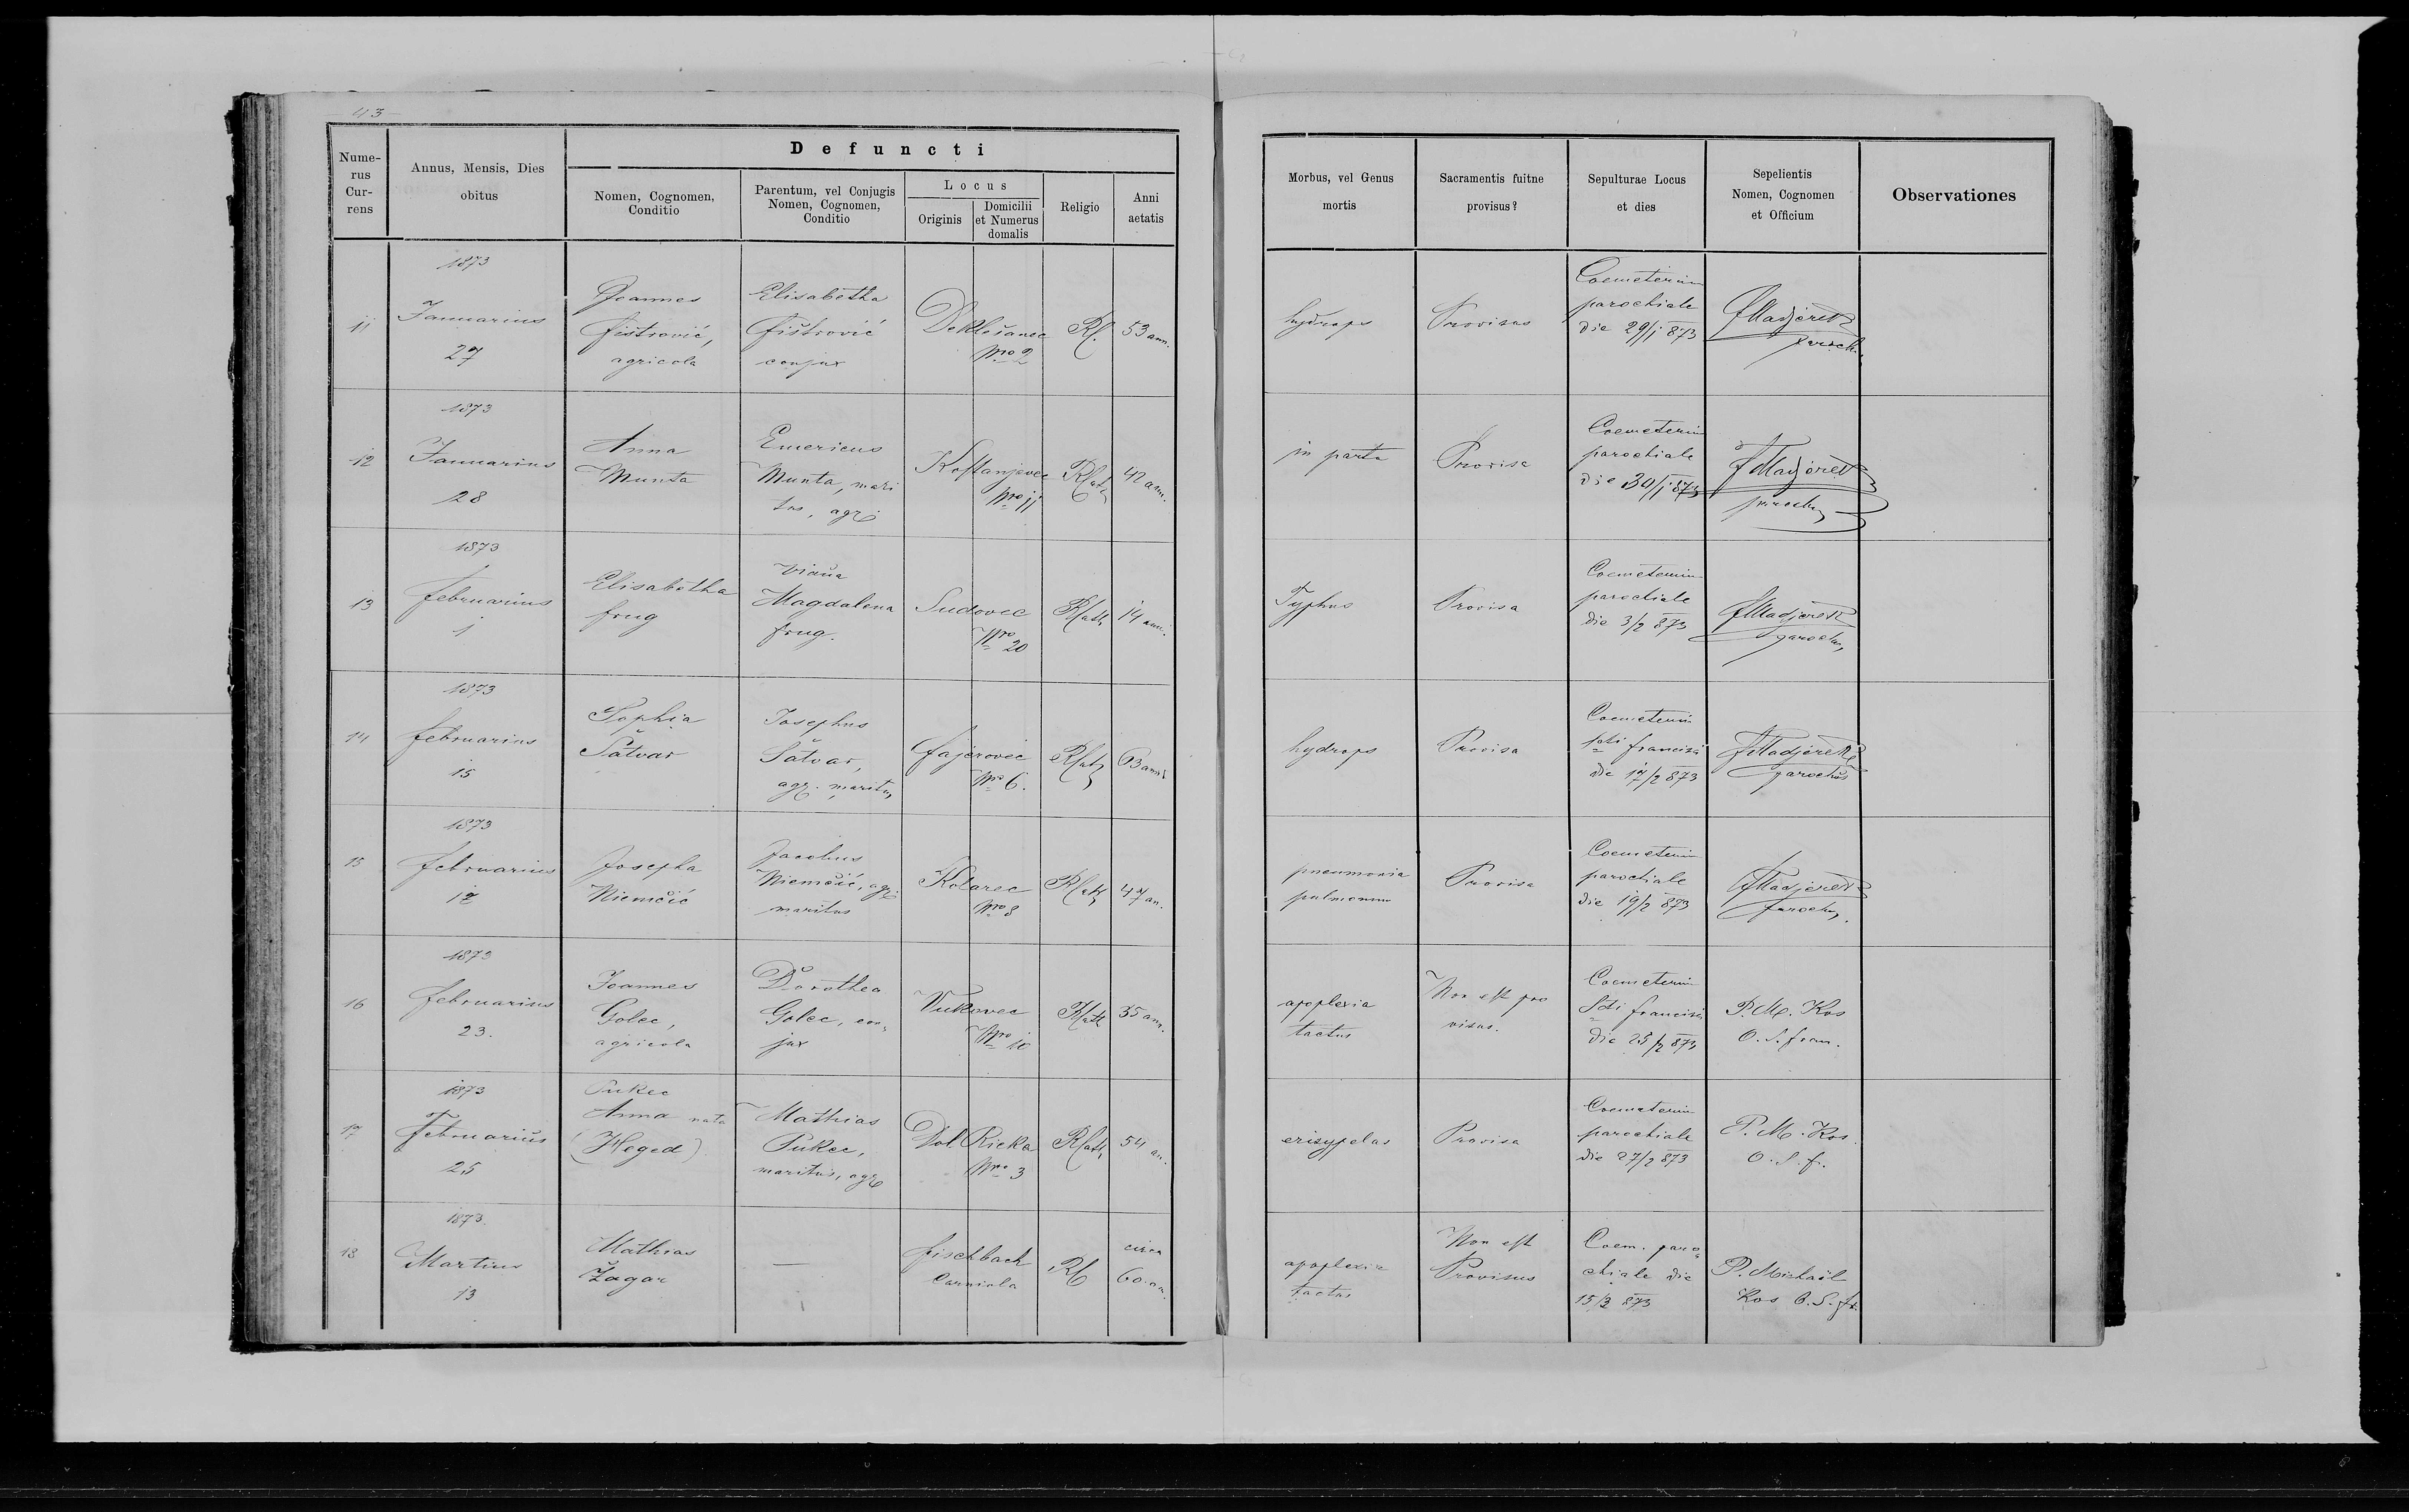 43
Defuncti
Nume-
rus
Cur-
rens
Annus, Mensis, Dies
obitus
Nomen, Cognomen,
Conditio
Parentum, vel Conjugis
Nomen, Cognomen,
Conditio
Locus
Originis
Domicilii
et Numerus
domalis
Religio
Anni
aetatis
Morbus, vel Genus
mortis
Sacramentis fuitne
provisus?
Sepulturae Locus
et dies
Sepelientis
Nomen, Cognomen
et Officium
Observationes
11
1873
Januarius
27
Joannes
Fistrović,
agricola
Elisabetha
Fistrović
conjux
Deklešanec
Nro 2
RC.
53 ann.
hydrops
Provisus
Coemeterium
parochiale
die 29/1 873
parochus
12
1873
Januarius
28
Anna
Munta
Emericus
Munta, mari
tus, agr.
Kostanjevec
Nro 11
RCath
42 ann.
in partu
Provisa
Coemeterium
parochiale
die 30/1 873
parochus
13
1873
Februarius
1
Elisabetha
Frug
vidua
Magdalena
Frug.
Sudovec
Nro 20
RCath
14 ann.
Typhus
Provisa
Coemeterium
parochiale
die 3/2 873
parochus
14
1873
Februarius
15
Sophia
Šatvar
Josephus
Šatvar,
agr. maritus
Fajerovec
Nro 6.
RCath
63 ann
hydrops
Provisa
Coemeterium
Sti Francisci
die 17/2 873
parochus
15
1873
Februarius
17
Josepha
Niemčić
Jacobus
Niemčić, agr.
maritus
Kolarec
Nro 8
RCath
47 an.
pneumonia
pulmonum
Provisa
Coemeterium
parochiale
die 19/2 873
parochus
16
1873
Februarius
23.
Joannes
Golec,
agricola
Dorothea
Golec, con-
jux
Vukovec
Nro 10
RCath
35 ann.
apoplexia
tactus
Non est pro
visus.
Coemeterium
Sti Francisci
die 25/2 873
P. M. Kos
O. S. Fran.
17
1873
Februarius
25
Pukec
Anna nata
(Heged)
Mathias
Pukec,
maritus, agr.
Dol. Rieka
Nro 3
RCath
54 an.
erisypelas
Provisa
Coemeterium
parochiale
die 27/2 873
P. M. Kos.
O. S. F.
18
1873.
Martius
13
Mathias
Žagar
—
Fischbach
Carniola
RC
circa
60. an.
apoplexia
tactus
Non est
Provisus
Coem. paro-
chiale die
15/3 873
P. Michaël
Kos O. S. Fr.